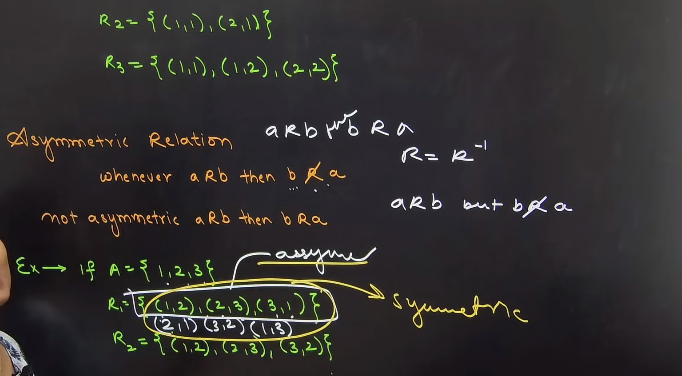 R₂ = {(1,1), (2,1)}
R₃ = {(1,1), (1,2), (2,2)}
Asymmetric Relation
aRb b R a
R = R⁻¹
whenever aRb then b R̸ a
aRb but bR̸a
not asymmetric aRb then bRa
assyme
Ex → If A = {1,2,3}
R₁ = {(1,2), (2,3), (3,1)}
symmetric
(2,1) (3,2) (1,3)
R₂ = {(1,2), (2,3), (3,2)}